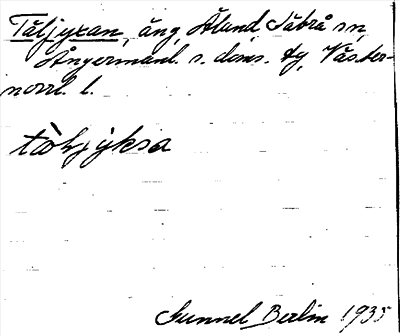 Täljyxan, äng, Åland, Säbrå sn,
Ångermanl. s. doms. fy, Väster-
norrl. l.
tὰljyksa
Gunnel Berlin 1935